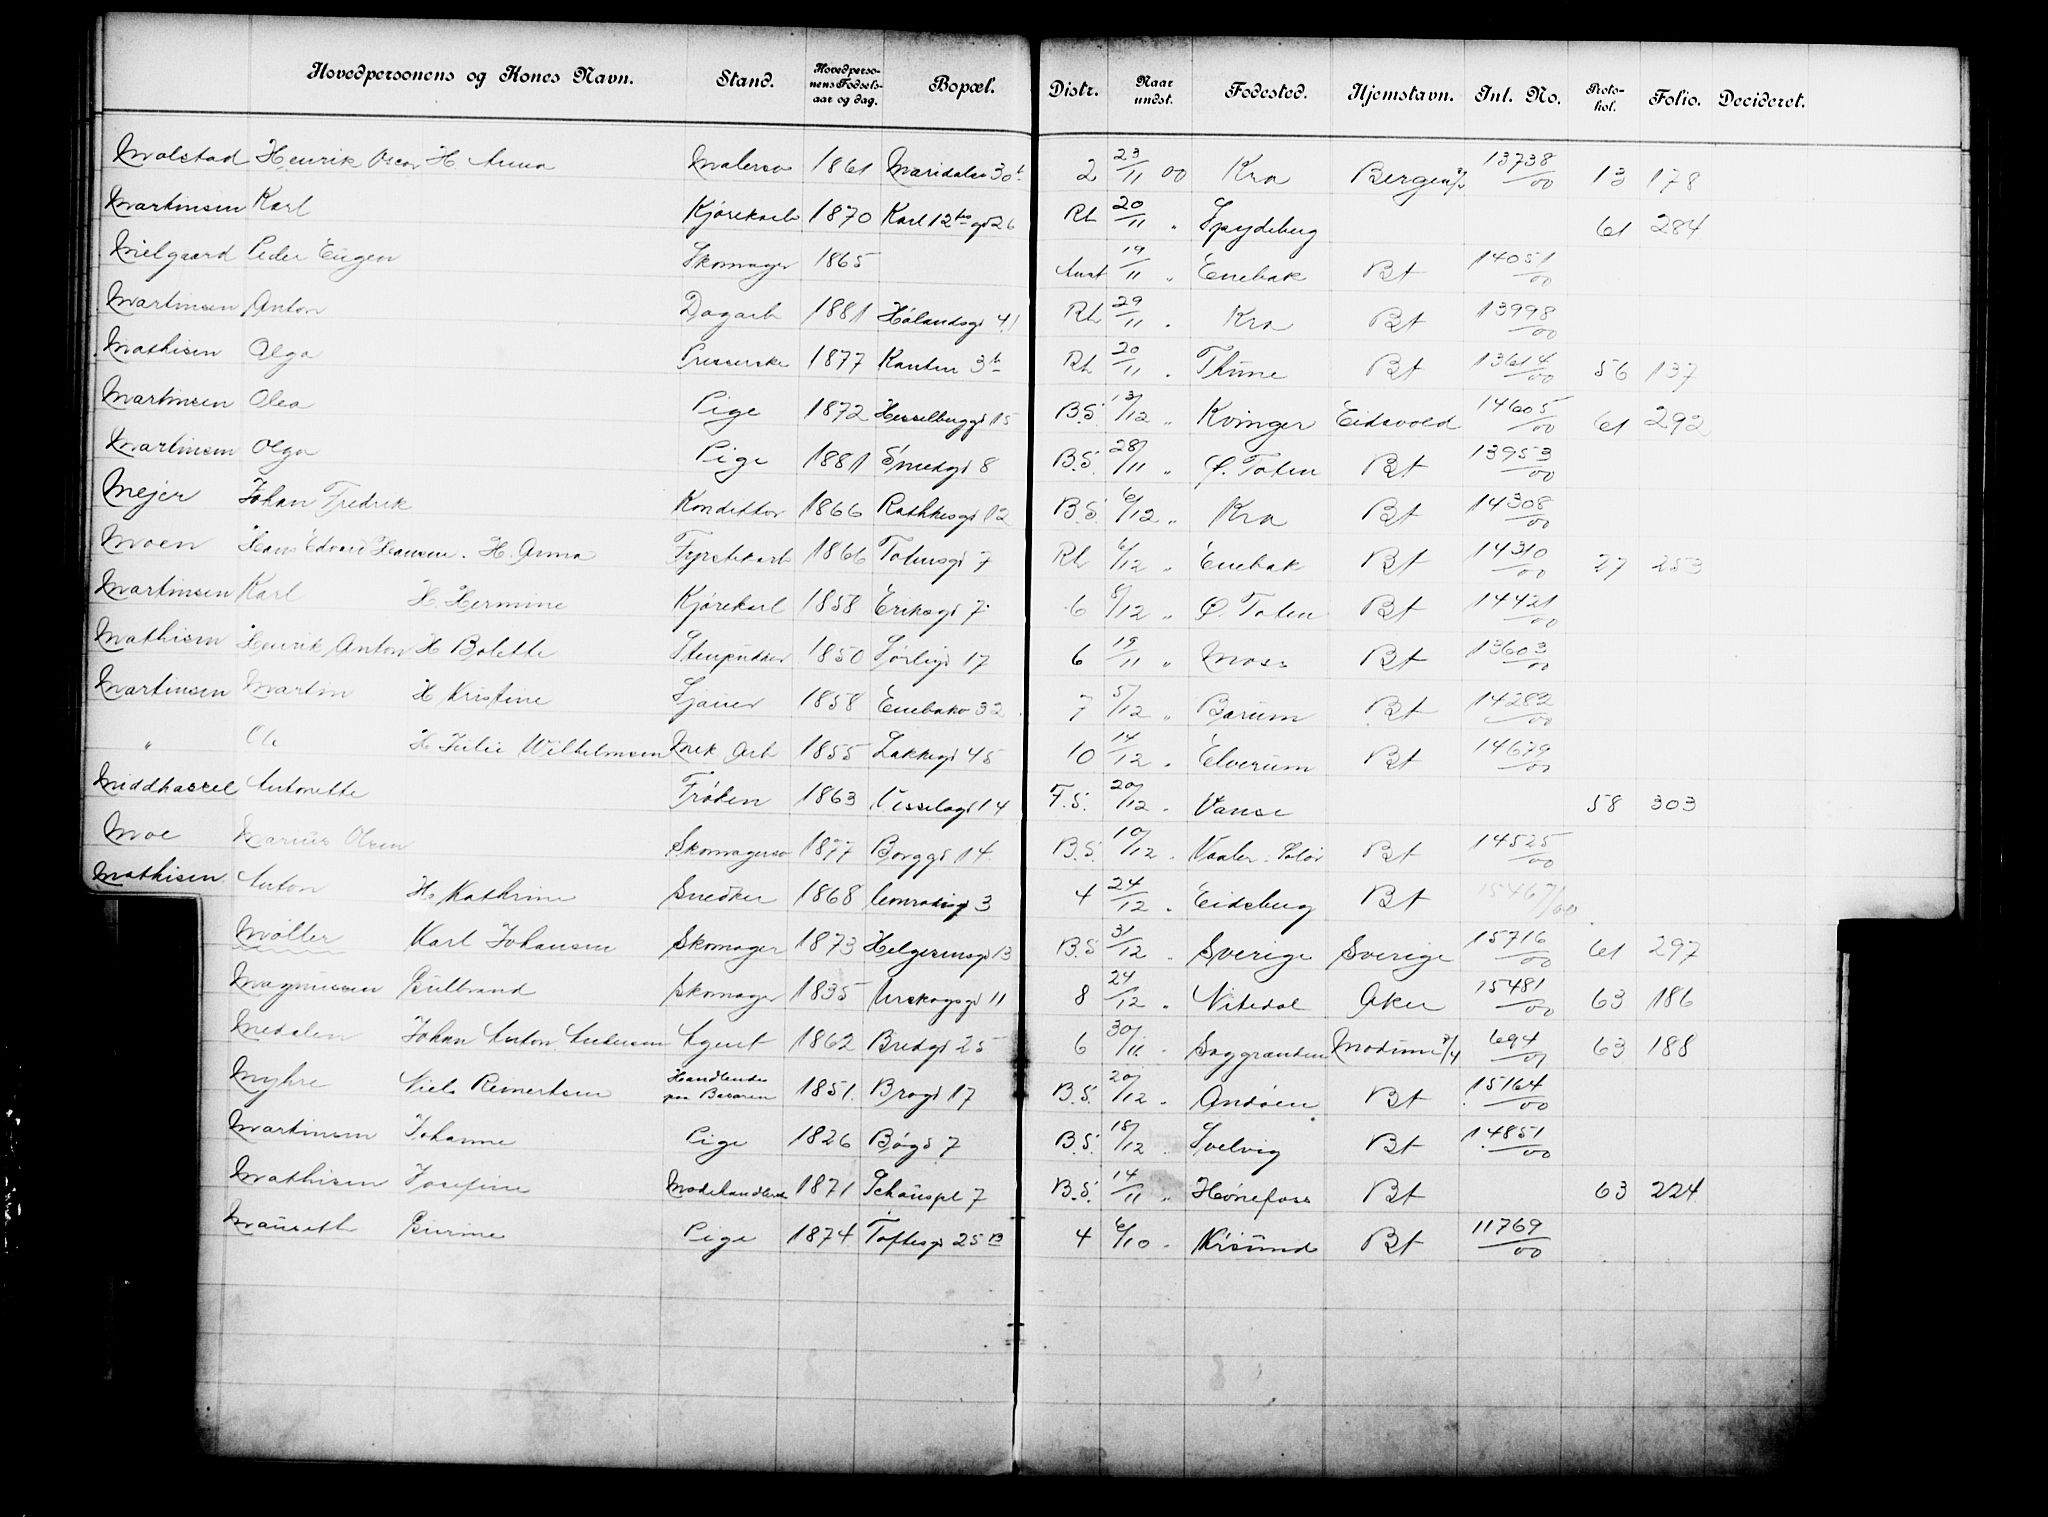 Hovedpersonens og Kones Navn. Stand. Hovedpersonens Fødselsaar og dag. Bopæl. Distr. Naar undst. Fødested. Hjemstavn. Inl. No. Protokol. Folio. Decideret.
Molstad Henrik Oscar H. Anna Malersv 1861 Maridalsv 30b 2 23/11 00 Kra Bergen 13738/00 13 178
Martinsen Karl Kjørekarl 1870 Karl 12tes gd 26 Rh 20/11 " Spydeberg 61 284
Mielgaard Peder Eugen Skomager 1865 Aust 19/11 " Enebak Bt 14051/00
Martinsen Anton Dagarb 1881 Hølandsgd 41 Rh 29/11 " Kra Bt 13998/00
Mathisen Olga Presserske 1877 Kanten 3b Rh 20/11 " Thime Bt 13614/00 56 137
Martinsen Olea Pige 1872 Hesselberggd 15 B.S. 13/12 " Kvinger Eidsvold 14605/00 61 292
Martinsen Olga Pige 1881 Smedgd 8 B.S. 28/11 " Ø. Toten Bt 13953/00
Mejer Johan Fredrik Konditter 1866 Rathkesgd 12 B.S. 6/12 " Kra Bt 14308/00
Moen Hans Edvard Hansen. H. Anna Fyrstikarb 1866 Totensgd 7 Rh 6/12 " Enebak Bt 14310/00 27 253
Martinsen Karl H. Hermine Kjørekarl 1858 Eriksgd 7 6 6/12 " Ø. Toten Bt 14421/00
Mathisen Henrik Anton H Bolette Stenpukker 1850 Sørligd 17 6 19/11 " Moss Bt 13603/00
Martinsen Martin H Kristine Sjauer 1858 Enebakv 32 7 5/12 " Bærum Bt 14282/00
" Ole H Julie Wilhelmsen Mek Arb 1855 Lakkegd 45 10 14/12 " Elverum Bt 14679/00
Middhassel Antonette Frøken 1863 Visselogd 14 F.S. 20/12 " Vanse 58 303
Moe Marius Olsen Skomagersv 1877 Borggd 14 B.S. 10/12 " Vaaler Solør Bt 14525/00
Mathisen Anton H. Kathrine Snedker 1868 Conradisgd 3 4 24/12 " Eidsberg Bt 15467/00
Møller Karl Johansen Skomager 1873 Helgesensgd 13 B.S 31/12 " Sverige Sverige 15716/00 61 297
Magnussen Gulbrand Skomager 1835 Urskogsgd 11 8 24/12 " Nitedal Aker 15481/00 63 186
Medalen Johan Anton Andersen Agent 1862 Bredgd 25 6 30/11 " Saggranden Modum 694/01 63 188
Myhre Niels Reinertsen Handlende paa Basaren 1851 Brogd 17 B.S. 20/12 " Andøen Bt 15164/00
Martinsen Johanne Pige 1826 Bøgd 7 B.S. 18/12 " Svelvig Bt 14851/00
Mathisen Josefine Modehandlerske 1871 Schouspl 7 B.S. 14/11 " Hønefoss Bt 63 224
Mauseth Gurine Pige 1874 Toftesgd 25 B 4 6/10 " Krsund Bt 11769/00